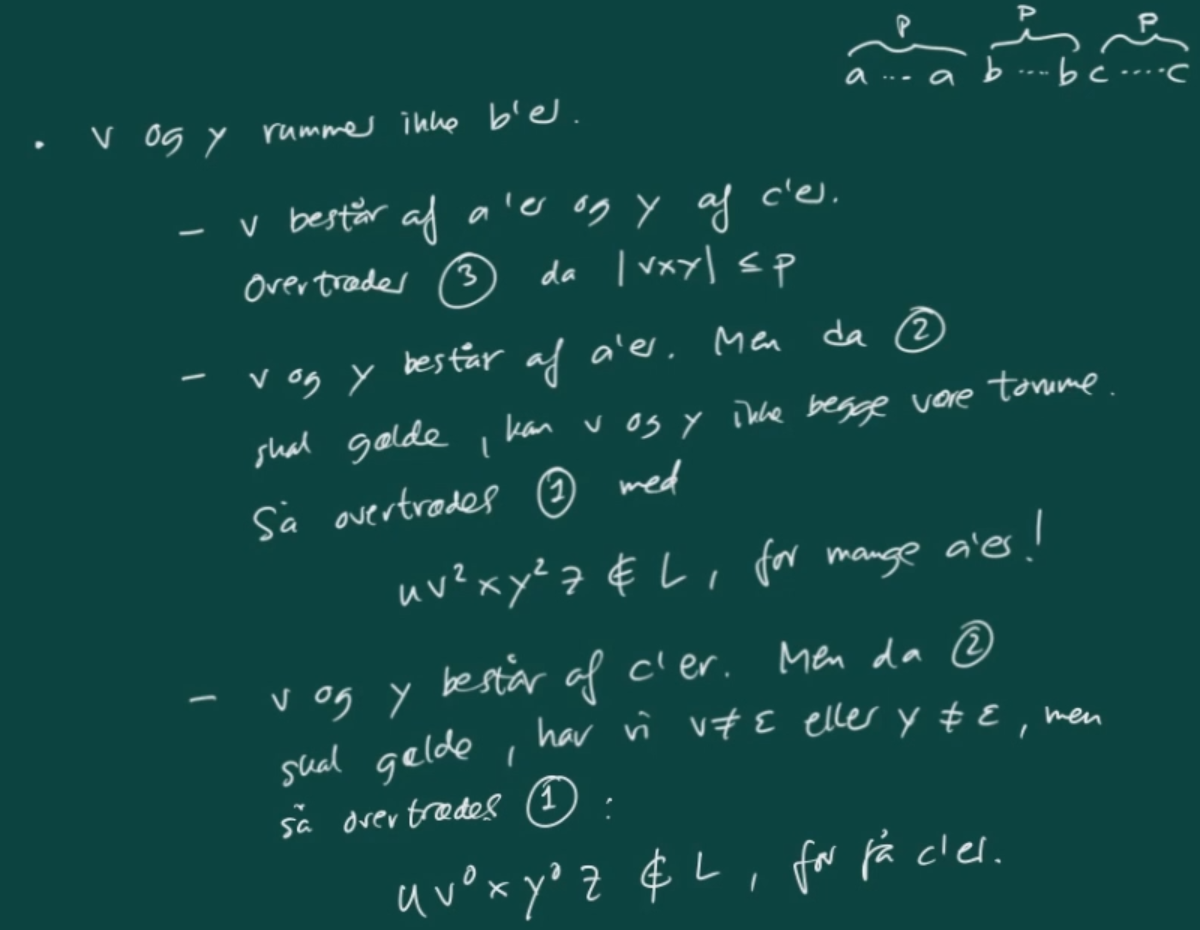 P P P
a ... a b ....b c .....c
• v og y rummer ikke b'er.
– v består af a'er og y af c'er.
Overtræder ③ da |vxy| ≤ p
– v og y består af a'er. Men da ②
skal gælde, kan v og y ikke begge være tomme.
Så overtrædes ① med
uv²xy²z ∉ L, for mange a'er!
– v og y består af c'er. Men da ②
skal gælde, har vi v ≠ ε eller y ≠ ε, men
så overtrædes ① :
uv⁰xy⁰z ∉ L, for få c'er.